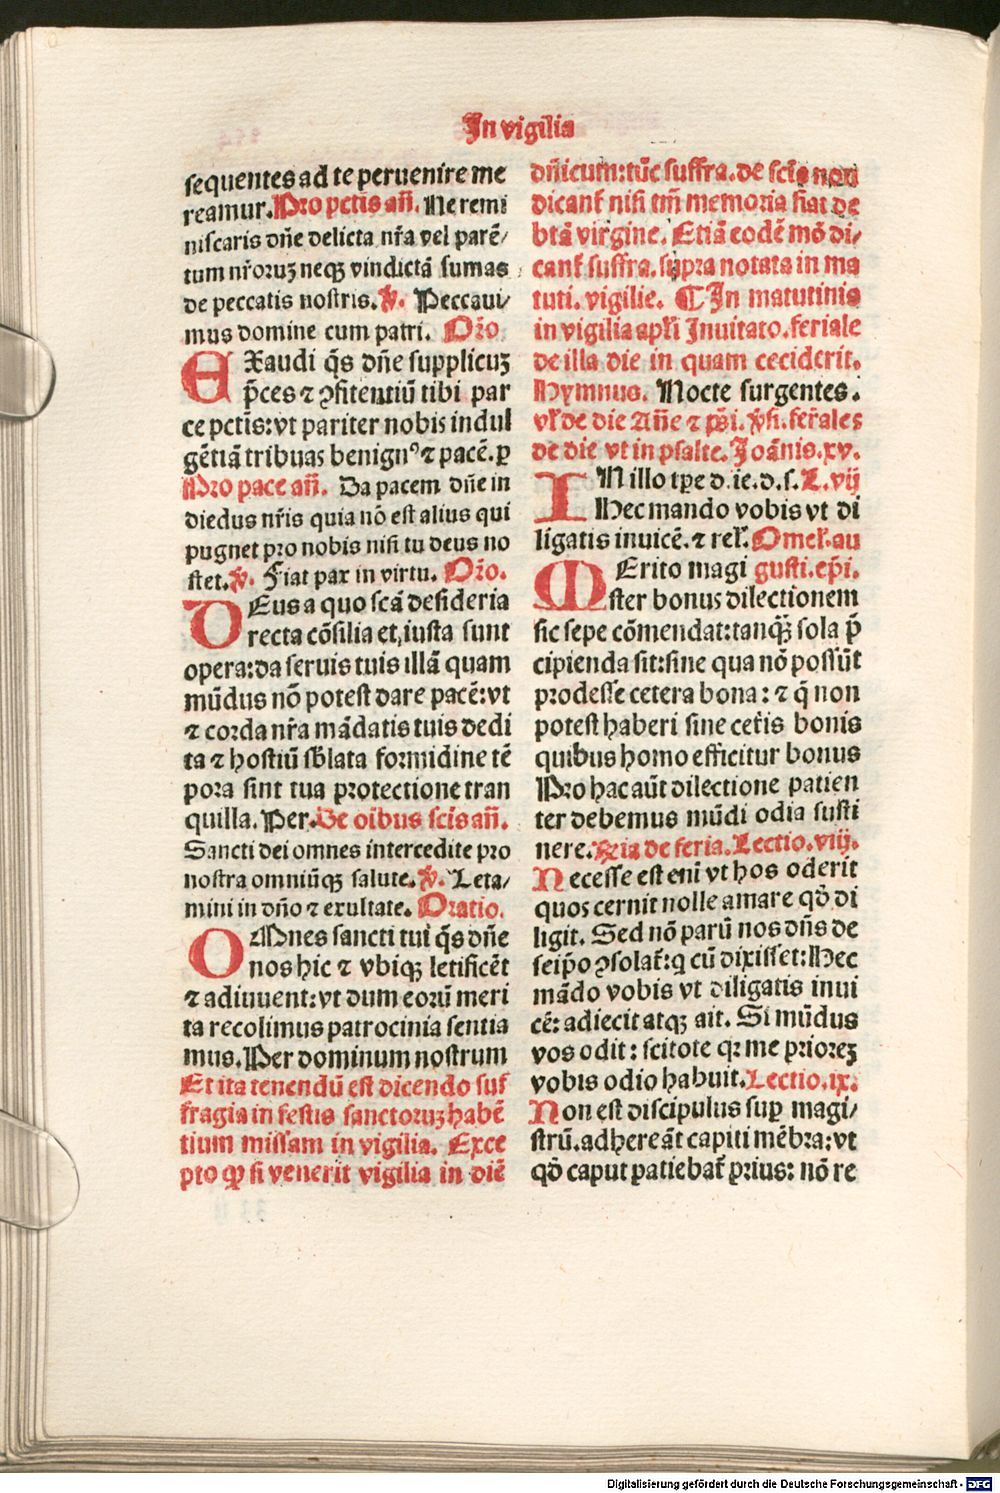 In vigilia
sequentes ad te peruenire me
reamur. Pro pctis añ. Ne remi
niscaris dñe delicta nr̃a vel parẽ/
tum nr̃oruꝫ neqꝫ vindictã sumas
de peccatis nostris. ℣. Peccaui/
mus domine cum patri. Or̃o
EXaudi q̃s dñe supplicuꝫ
p̃ces ⁊ ꝯfitentiũ tibi par
ce pctis: vt pariter nobis indul
gẽtiã tribuas benignꝰ ⁊ pacẽ. ꝑ
Pro pace añ. Da pacem dñe in
diebus nr̃is quia nõ est alius qui
pugnet pro nobis nisi tu deus no
ster. ℣. Fiat pax in virtu. Or̃o.
DEus a quo scã desideria
recta cõsilia et iusta sunt
opera: da seruis tuis illã quam
mũdus nõ potest dare pacẽ: vt
⁊ corda nr̃a mãdatis tuis dedi
ta ⁊ hostiũ sb̃lata formidine tẽ
pora sint tua protectione tran
quilla. Per. De oĩbus scis añ.
Sancti dei omnes intercedite pro
nostra omniũqꝫ salute. ℣. Leta/
mini in dño ⁊ exultate. Oratio.
OMnes sancti tui q̃s dñe
nos hic ⁊ vbiqꝫ letificẽt
⁊ adiuuent: vt dum eorũ meri
ta recolimus patrocinia sentia
mus. Per dominum nostrum
Et ita tenendũ est dicendo suf
fragia in festis sanctoruꝫ habẽ
tium missam in vigilia. Exce
pto ꝙ si venerit vigilia in diẽ
dñicum: tũc suffra. de scis non
dicant̃ nisi tm̃ memoria fiat de
btã virgine. Etiã eodẽ mõ di/
cant̃ suffra. supra notata in ma
tuti. vigilie. ¶ In matutinis
in vigilia apl̃i Inuitato. feriale
de illa die in quam ceciderit.
Hymnus. Nocte surgentes.
vl̃ de die Añe ⁊ ps̃i. ℣si. fer̃ales
de die vt in psalte. Joãnis. xv.
IN illo tꝑe d. ie. d. s. L. vij
Hec mando vobis vt di
ligatis inuicẽ. ⁊ rel̃. Omel̃. au
MErito magi gusti. ep̃i.
ster bonus dilectionem
sic sepe cõmendat: tanqꝫ̃ sola p̃
cipienda sit: sine qua nõ possũt
prodesse cetera bona: ⁊ q̃ non
potest haberi sine cet̃is bonis
quibus homo efficitur bonus
Pro hac aũt dilectione patien
ter debemus mũdi odia susti
nere. R̃ia de feria. Lectio. viij.
Necesse est eni vt hos oderit
quos cernit nolle amare qd̃ di
ligit. Sed nõ parũ nos dñs de
seip̃o ꝯsolat̃: q cũ dixisset: Hec
mãdo vobis vt diligatis inui
cẽ: adiecit atqꝫ ait. Si mũdus
vos odit: scitote qꝛ me prioreꝫ
vobis odio habuit. Lectio. ix.
Non est discipulus suꝑ magi/
strũ. adhereãt capiti mẽbra: vt
qd̃ caput patiebat̃ prius: nõ re
Digitalisierung gefördert durch die Deutsche Forschungsgemeinschaft - DFG